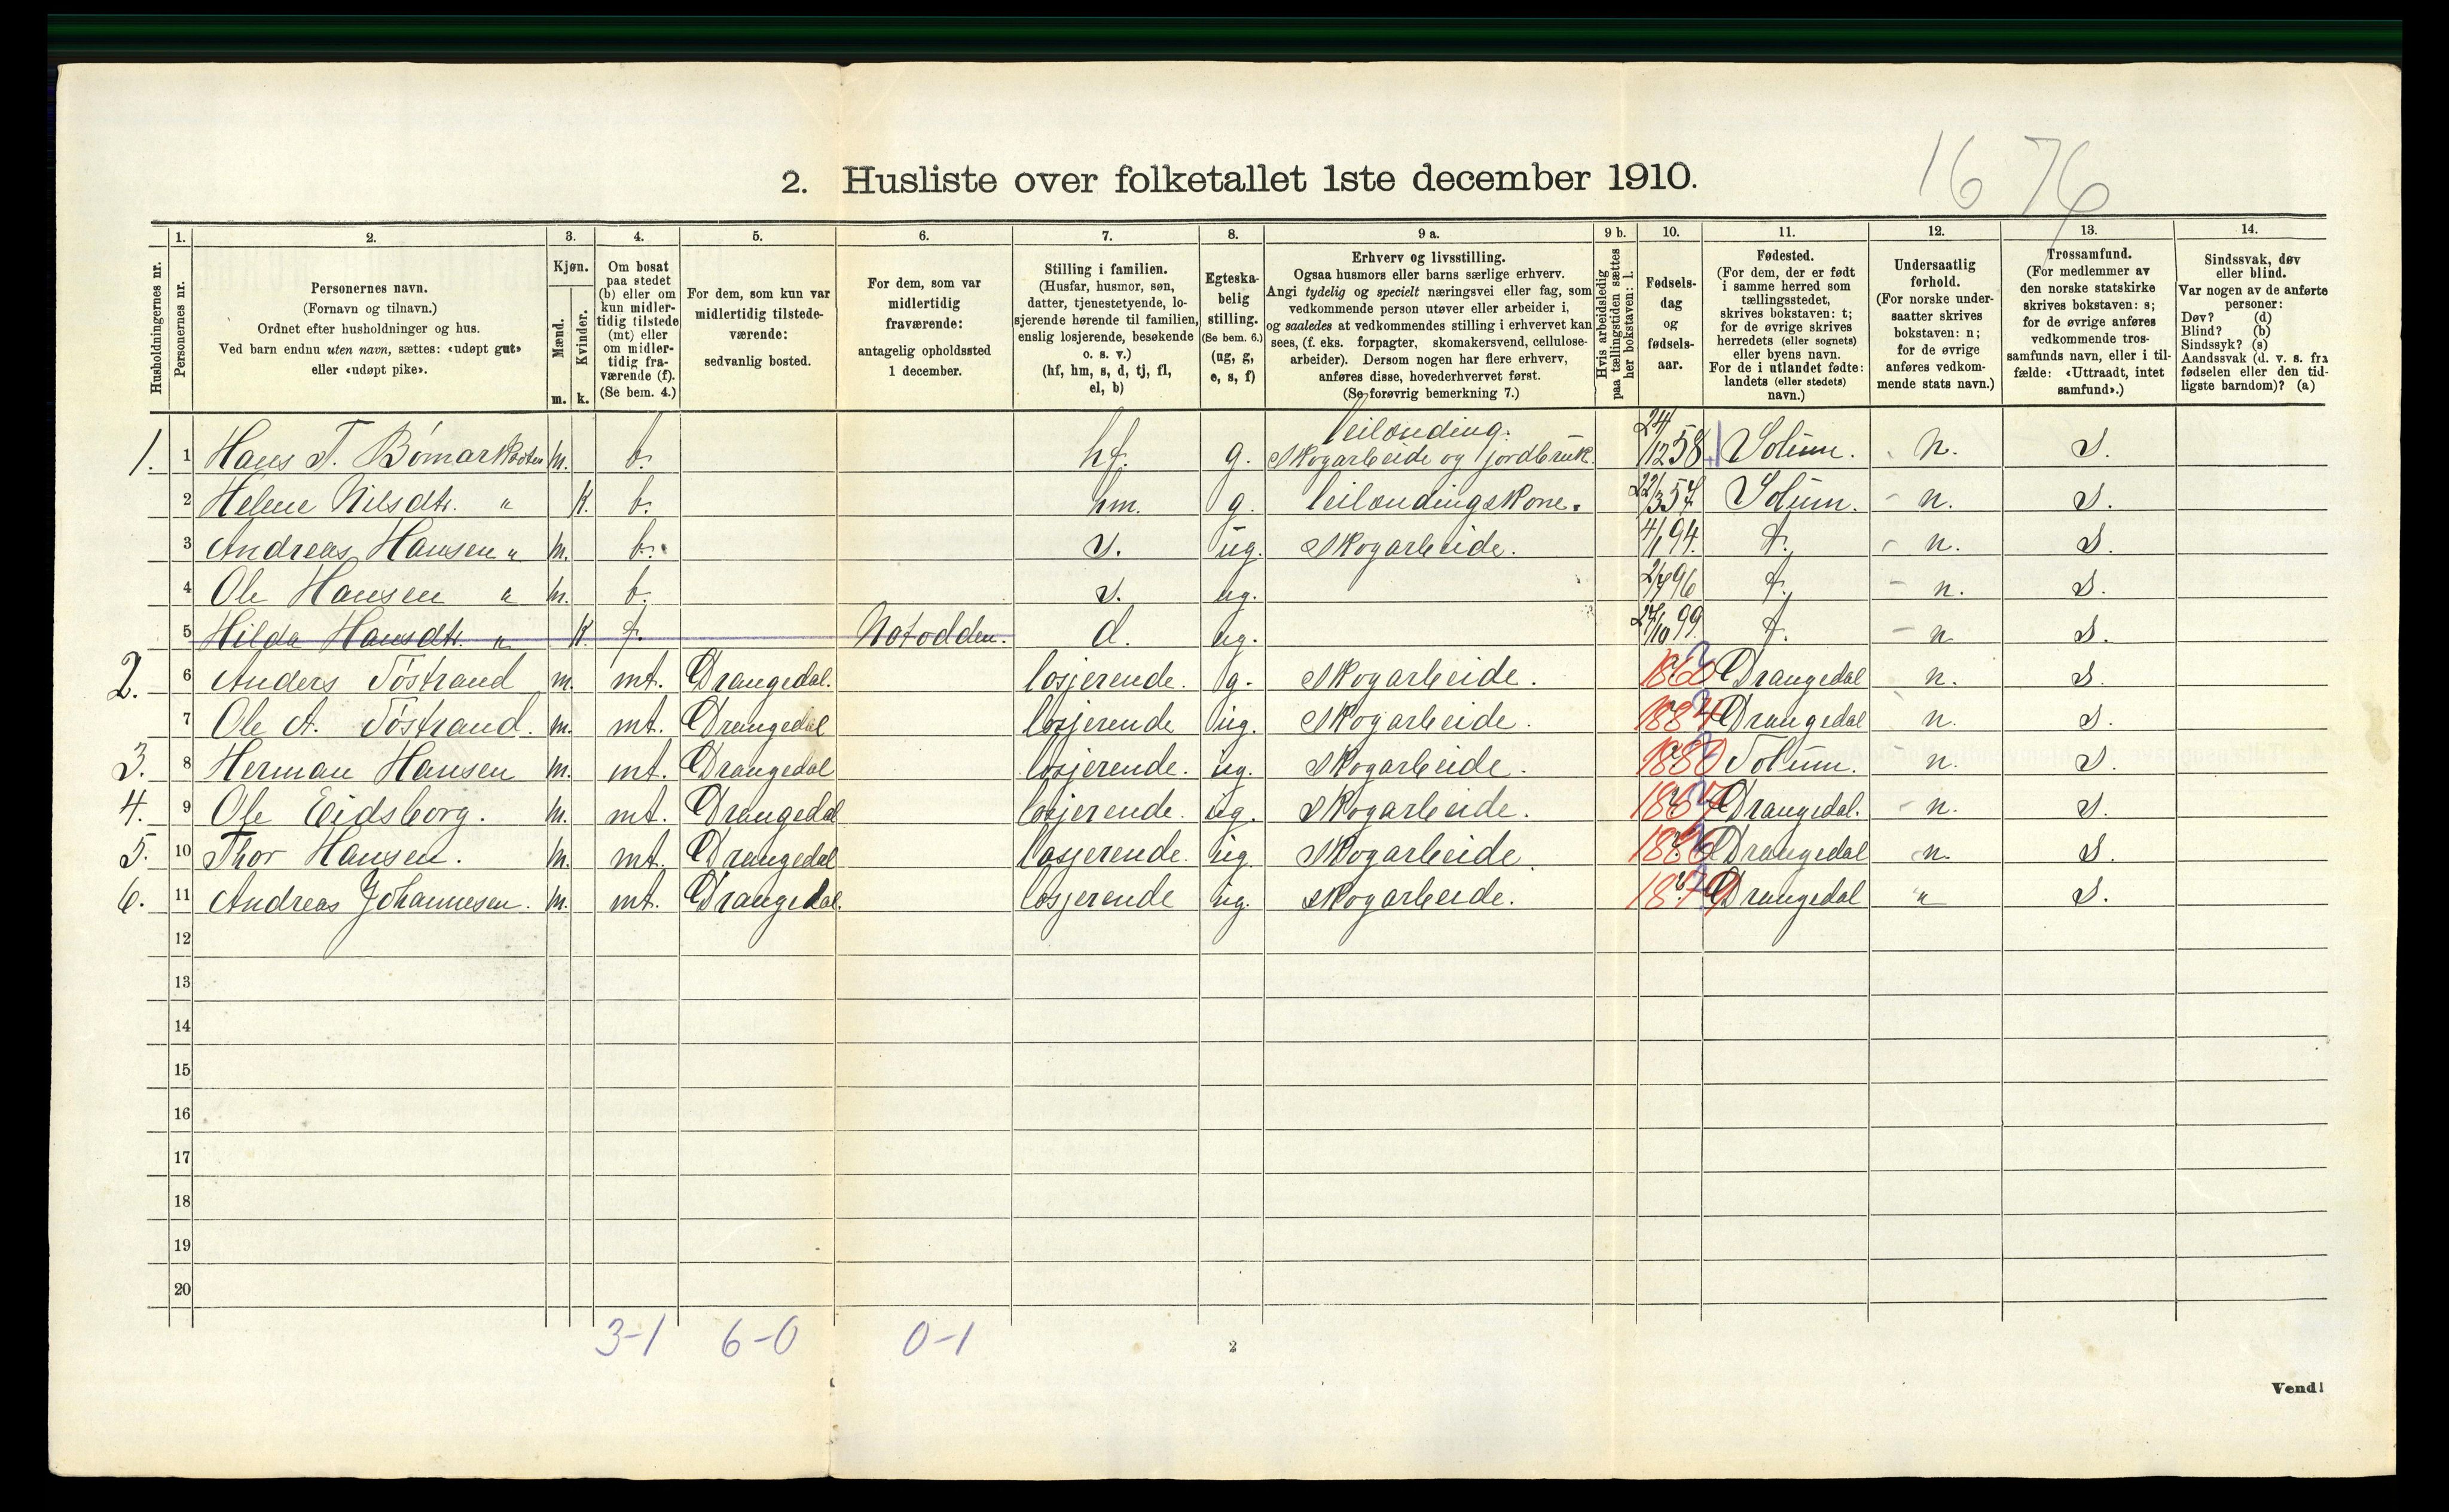 16 76
2. Husliste over folketallet 1ste december 1910.
1. 2. 3. 4. 5. 6. 7. 8. 9 a. 9 b. 10. 11. 12. 13. 14.
Husholdningernes nr.
Personernes nr.
Personernes navn.
(Fornavn og tilnavn.)
Ordnet efter husholdninger og hus.
Ved barn endnu uten navn, sættes: «udøpt gut»
eller «udøpt pike».
Kjøn.
Mænd.
Kvinder.
m. k.
Om bosat
paa stedet
(b) eller om
kun midler-
tidig tilstede
(mt) eller
om midler-
tidig fra-
værende (f).
(Se bem. 4.)
For dem, som kun var
midlertidig tilstede-
værende:
sedvanlig bosted.
For dem, som var
midlertidig
fraværende:
antagelig opholdssted
1 december.
Stilling i familien.
(Husfar, husmor, søn,
datter, tjenestetyende, lo-
sjerende hørende til familien,
enslig losjerende, besøkende
o. s. v.)
(hf, hm, s, d, tj, fl,
el, b)
Egteska-
belig
stilling.
(Se bem. 6.)
(ug, g,
e, s, f)
Erhverv og livsstilling.
Ogsaa husmors eller barns særlige erhverv.
Angi tydelig og specielt næringsvei eller fag, som
vedkommende person utøver eller arbeider i,
og saaledes at vedkommendes stilling i erhvervet kan
sees, (f. eks. forpagter, skomakersvend, cellulose-
arbeider). Dersom nogen har flere erhverv,
anføres disse, hovederhvervet først.
(Se forøvrig bemerkning 7.)
Hvis arbeidsledig
paa tællingstiden sættes
her bokstaven: l.
Fødsels-
dag
og
fødsels-
aar.
Fødested.
(For dem, der er født
i samme herred som
tællingsstedet,
skrives bokstaven: t;
for de øvrige skrives
herredets (eller sognets)
eller byens navn.
For de i utlandet fødte:
landets (eller stedets)
navn.)
Undersaatlig
forhold.
(For norske under-
saatter skrives
bokstaven: n;
for de øvrige
anføres vedkom-
mende stats navn.)
Trossamfund.
(For medlemmer av
den norske statskirke
skrives bokstaven: s;
for de øvrige anføres
vedkommende tros-
samfunds navn, eller i til-
fælde: «Uttraadt, intet
samfund».)
Sindssvak, døv
eller blind.
Var nogen av de anførte
personer:
Døv? (d)
Blind? (b)
Sindssyk? (s)
Aandssvak (d. v. s. fra
fødselen eller den tid-
ligste barndom)? (a)
1. 1 Hans T. Bømark m. b. hf. g. leilending. Skogarbeide og jordbruk. 24/12 58 Solum. n. S.
2 Helene Nilsdtr. " k. b. hm. g. leilendingskone. 22/3 57 Solum. n. S.
3 Andreas Hansen " m. b. s. ug. Skogarbeide. 4/1 94. t. n. S.
4 Ole Hansen " m. b. s. ug. 96 t. n. S.
5 Hilda Hansdtr. " k f. Notodden. d. ug. 27/10 99 t. n S.
2. 6 Anders Tøstrand m. mt. Drangedal. losjerende. g. Skogarbeide. 1860 Drangedal n. S.
7 Ole A. Tøstrand. m. mt. Drangedal losjerende ug. Skogarbeide. 1884 Drangedal n. S.
3. 8 Herman Hansen m. mt. Drangedal losjerende. ug. Skogarbeide. 1880 Solum. n. S.
4. 9 Ole Eidsborg. m. mt. Drangedal losjerende. ug. Skogarbeide. Drangedal. n. S.
5. 10 Thor Hansen. m. mt. Drangedal losjerende. ug Skogarbeide. 1886 Drangedal n. S.
6. 11 Andreas Johannesen. m. mt. Drangedal. losjerende ug. Skogarbeide. 1879 Drangedal " S.
12
13
14
15
16
17
18
19
20
3-1 6-0 0-1
2
Vend!